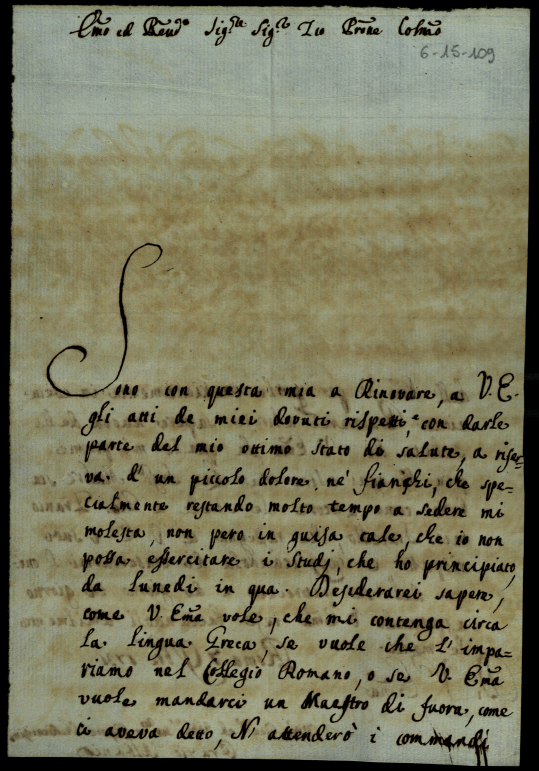 Emo ed Revdo Sigre Sigr Zio Prone Colmo
6-15-109
Sono con questa mia a Rinovare, a V. E.
gli atti de miei dovuti rispetti, con darle
parte del mio ottimo stato di salute, a riser=
va d' un piccolo dolore ne' fianghi, che spe=
cialmente restando molto tempo a sedere mi
molesta, non pero in guisa tale, che io non
possa essercitare i Studj, che ho principiato,
da lunedi in qua. Desiderarei sapere,
come V. Ema vole, che mi contenga circa
la lingua Greca, se vuole che l' impa=
riamo nel Collegio Romano, o se V. Ema
vuole mandarci un Maestro di fuora, come
ci aveva detto, N' attenderò i commandi